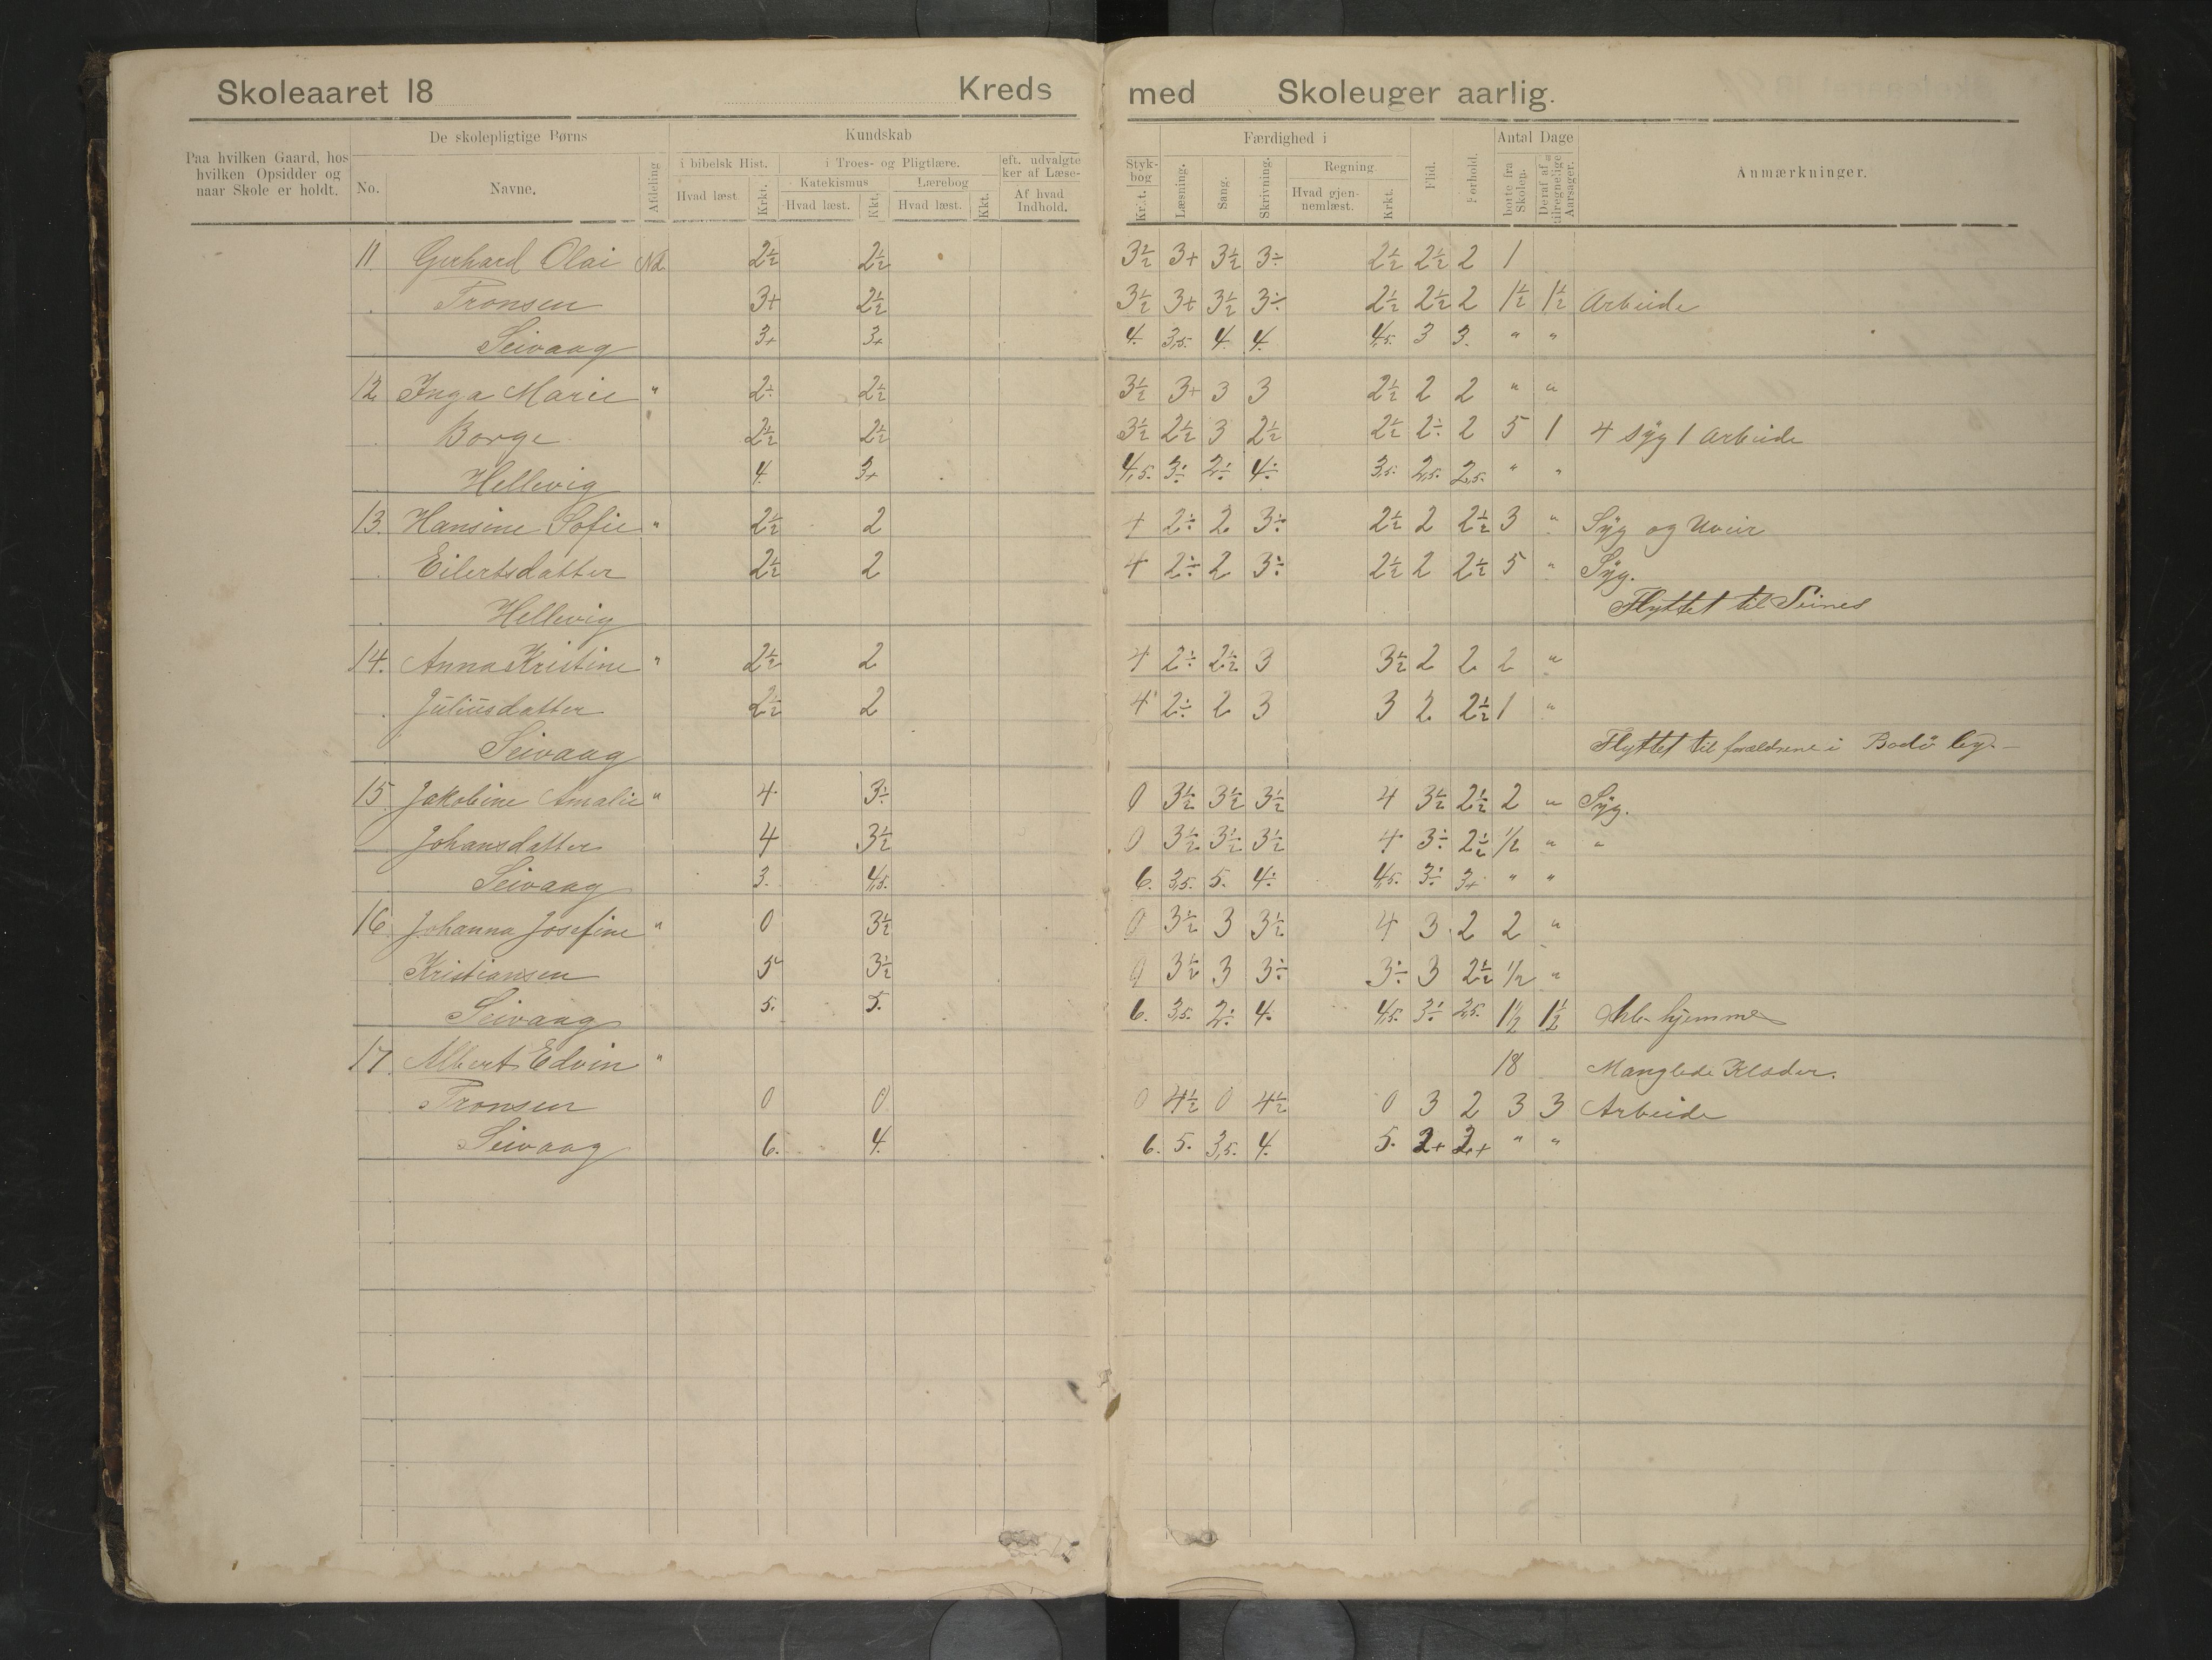 Skoleaaret 18 Kreds med Skoleuger aarlig.
Paa hvilken Gaard, hos hvilken Opsidder og naar Skole er holdt.
De skolepligtige Børns
No. Navne. Afdeling
Kundskab
i bibelsk Hist. i Troes- og Pligtlære. eft. udvalgte
ker af Læse-
Katekismus Lærebog
Hvad læst Krkt. Hvad læst. Kkt. Hvad læst. Kkt. Af hvad Indhold.
Færdighed i
Styk-bog Krkt. Læsning. Sang. Skrivning. Regning Hvad gjen-nemlæst. Krkt. Flid. Forhold.
Antal Dage
borte fra Skolep. Deraf af tilregnelige Aarsager.
Anmærkninger.
11 Gerhard Olai Nd 2½ 2½ 3½ 3+ 3½ 3÷ 2½ 2½ 2 1
Tronsen 3+ 2½ 3½ 3+ 3½ 3÷ 2½ 2½ 2 1½ 1½ Arbeide
Seivaag 3+ 3+ 4. 3,5. 4. 4. 4,5. 3 3. " "
12 Inga Marie " 2÷ 2½ 3½ 3+ 3 3 2½ 2 2 " "
Borge 2½ 2½ 3½ 2½ 3 2½ 2½ 2÷ 2 5 1 4 syg 1 Arbeide
Hellevig 4. 3+ 4,5. 3÷ 2÷ 4÷ 3,5. 2,5. 2,5. " "
13. Hansine Sofie " 2½ 2 4 2÷ 2 3÷ 2½ 2 2½ 3 " Syg og Uveir
Eilertsdatter 2½ 2 4 2÷ 2 3÷ 2½ 2 2½ 5 " Syg.
Hellevig Flyttet til Seines
14. Anna Kristine " 2½ 2 4 2÷ 2½ 3 3½ 2 2 2 "
Juliusdatter 2½ 2 4 2÷ 2 3 3 2 2½ 1 "
Seivaag Flyttet til forældrene i Bodö by.
15 Jakobine Amalie " 4 3÷ 0 3½ 3½ 3½ 4 3½ 2½ 2 " Syg.
Johansdatter 4 3½ 0 3½ 3½ 3½ 4 3÷ 2½ ½ " "
Seivaag 3. 4,5. 6. 3,5. 5. 4÷ 4,5. 3÷ 3+ " "
16 Johanna Josefine " 0 3½ 0 3½ 3 3½ 4 3 2 2 "
Kristiansen 5 3½ 0 3½ 3 3÷ 3÷ 3 2½ ½ "
Seivaag 5. 5. 6. 3,5. 2÷ 4. 4,5. 3÷ 2,5. 1½ 1½ hjemme
17 Albert Edvin " 18 Manglede Klæder.
Tronsen 0 0 0 4½ 0 4½ 0 3 2 3 3 Arbeide
Seivaag 6. 4. 6. 5. 3,5. 4. 5. 2+ 2+ " "